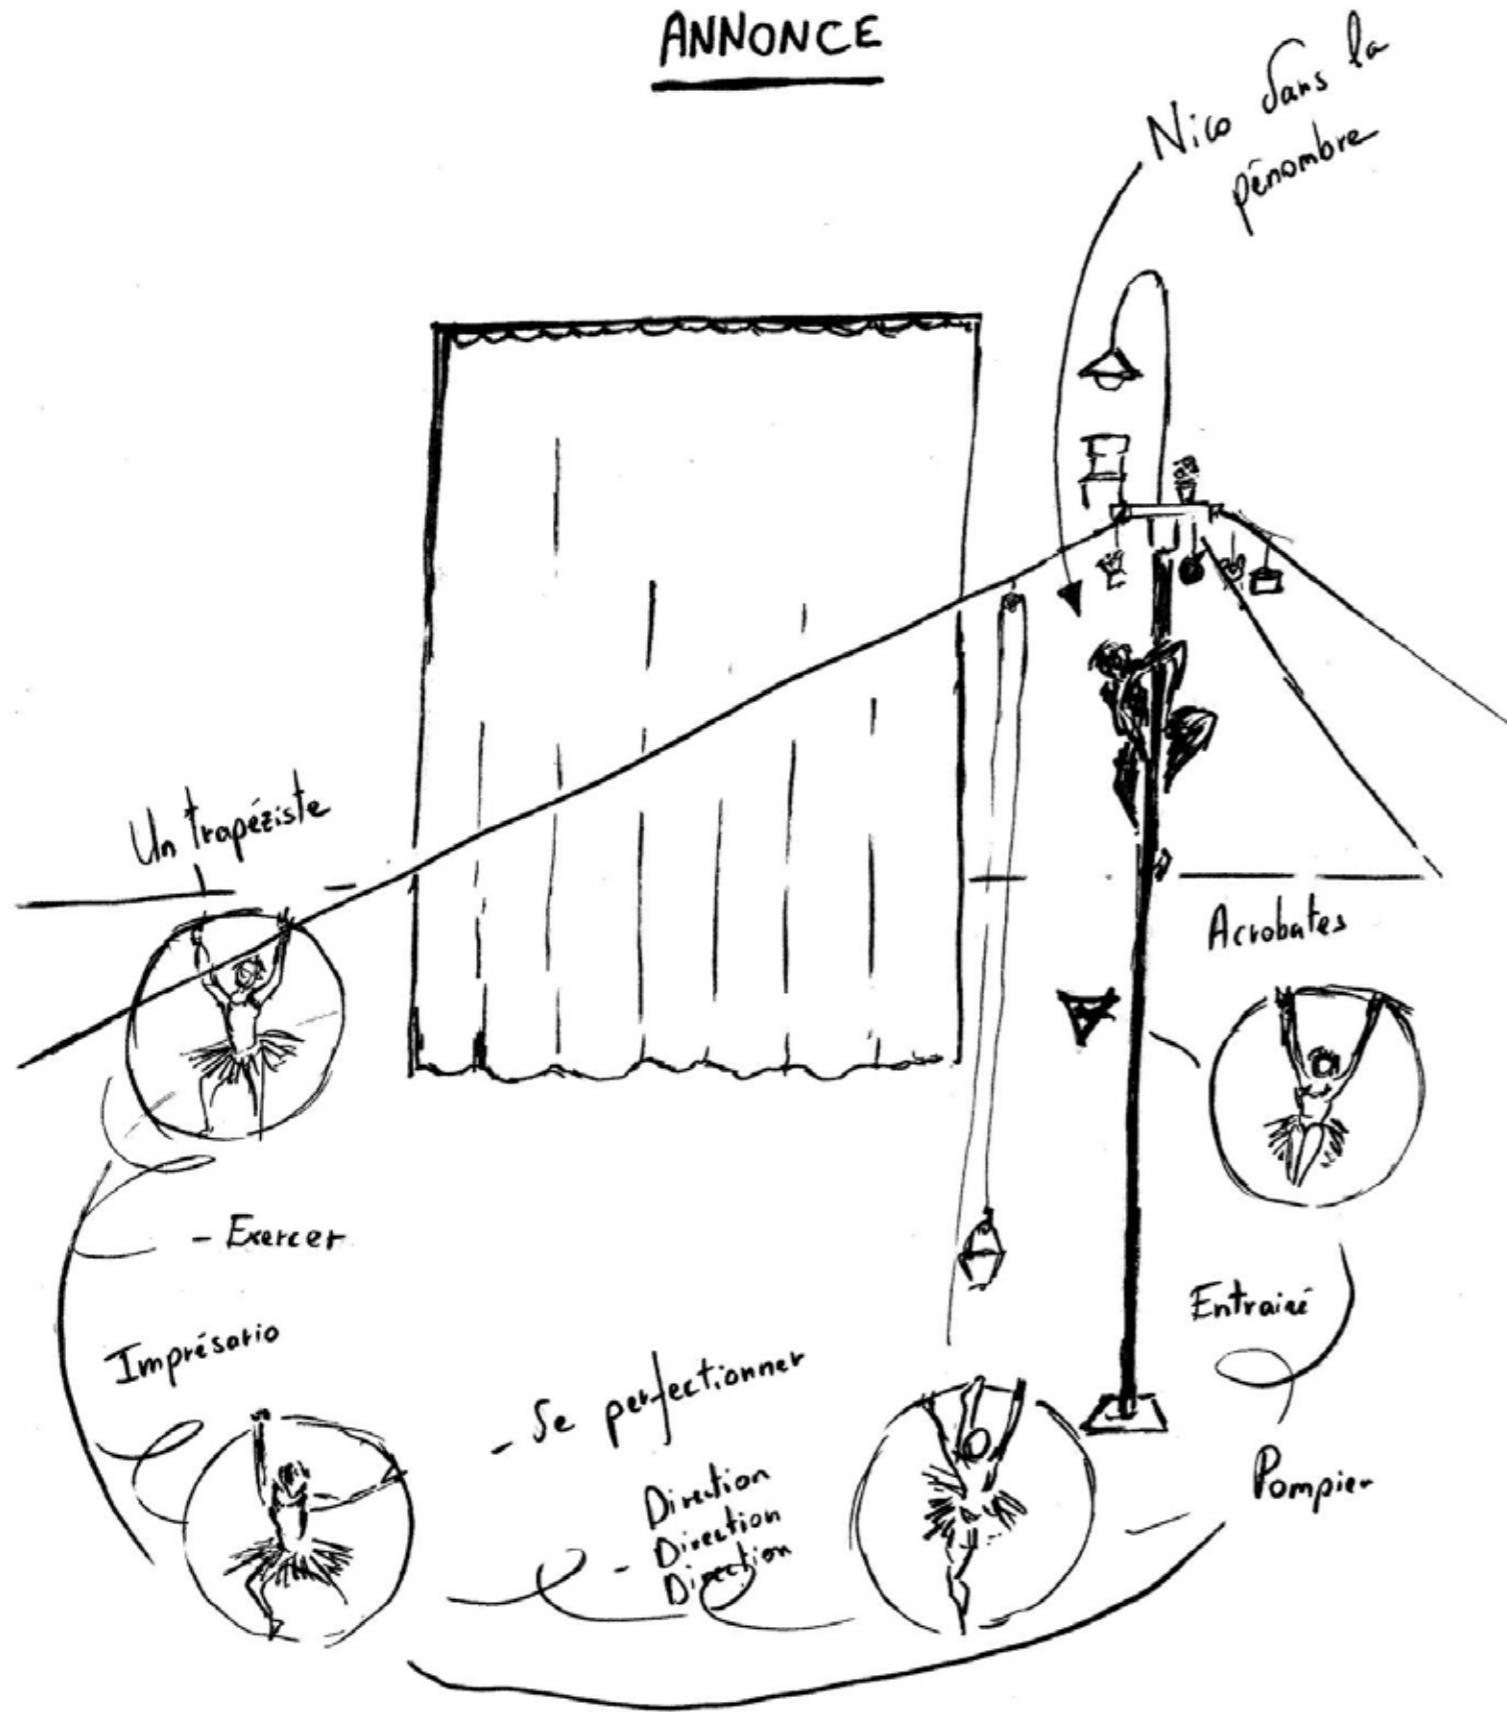 ANNONCE
Nico dans la
pénombre
Un trapéziste
Acrobates
- Exercer
Entrainé
Imprésario
- Se perfectionner
Direction
- Direction
Direction
Pompier